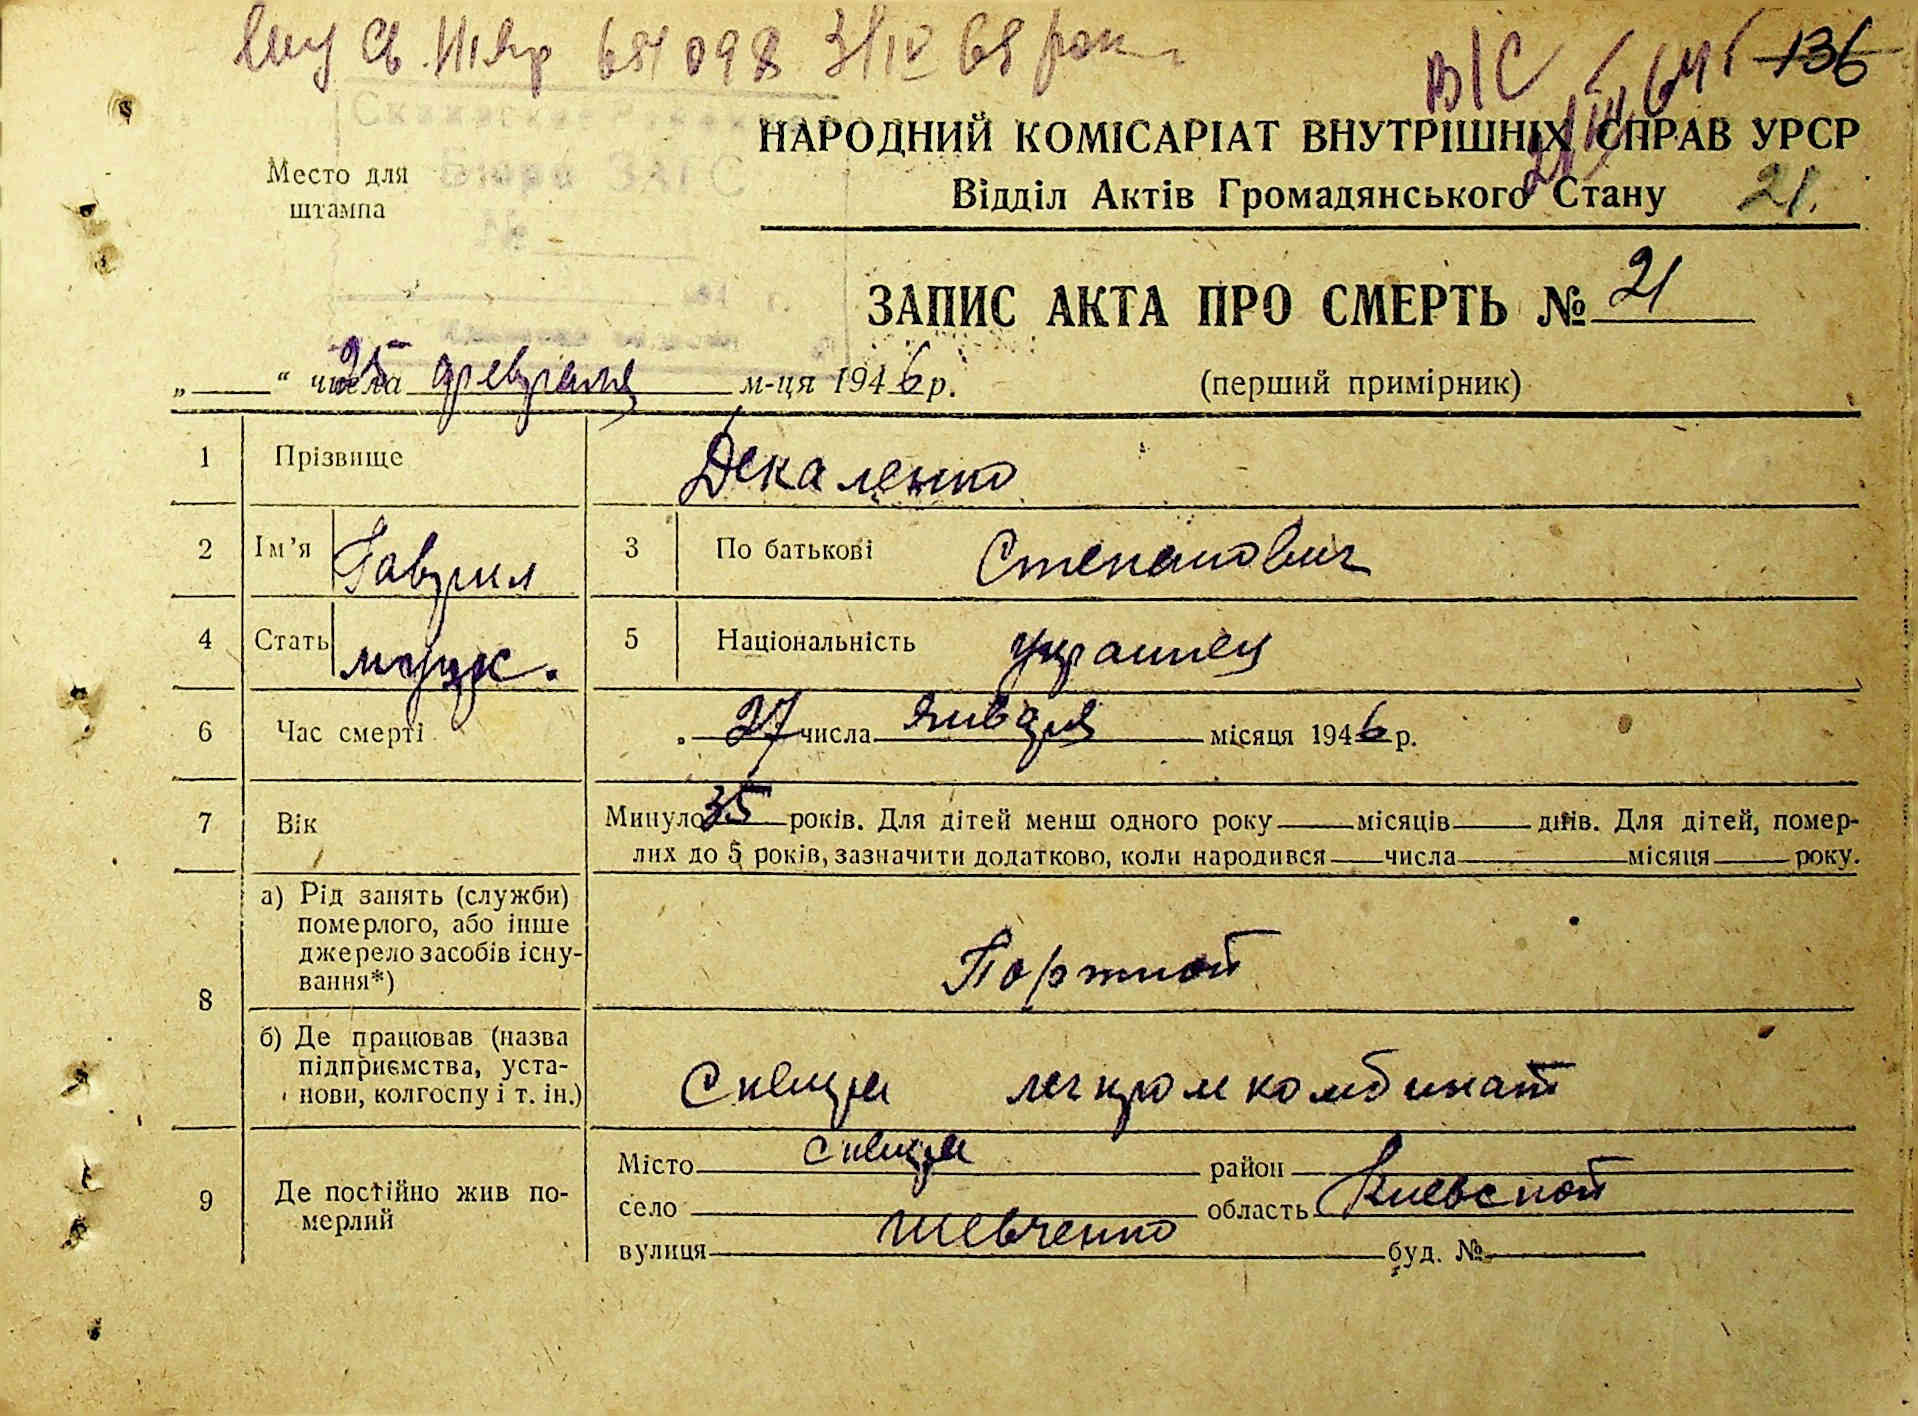 136
В/С
НАРОДНИЙ КОМІСАРІАТ ВНУТРІШНІХ СПРАВ УРСР
Відділ Актів Громадянського Стану 21.
Место для
штампа
Бюро ЗАГС
№
ЗАПИС АКТА ПРО СМЕРТЬ № 21
„ “ 25 числа февраля м-ця 1946 р. (перший примірник)
1 Прізвище Декаленко
2 Ім’я Гаврил 3 По батькові Степанович
4 Стать мужс. 5 Національність украинец
6 Час смерті 27 числа января місяця 1946 р.
7 Вік Минуло 35 років. Для дітей менш одного року місяців днів. Для дітей, помер-
лих до 5 років, зазначити додатково, коли народився числа місяця року.
8 а) Рід занять (служби)
померлого, або інше
джерело засобів існу-
вання*) Портной
б) Де працював (назва
підприємства, уста-
нови, колгоспу і т. ін.) легпромкомбинат
9 Де постійно жив по-
мерлий
Місто район
село область Киевской
вулиця Шевченко буд. №